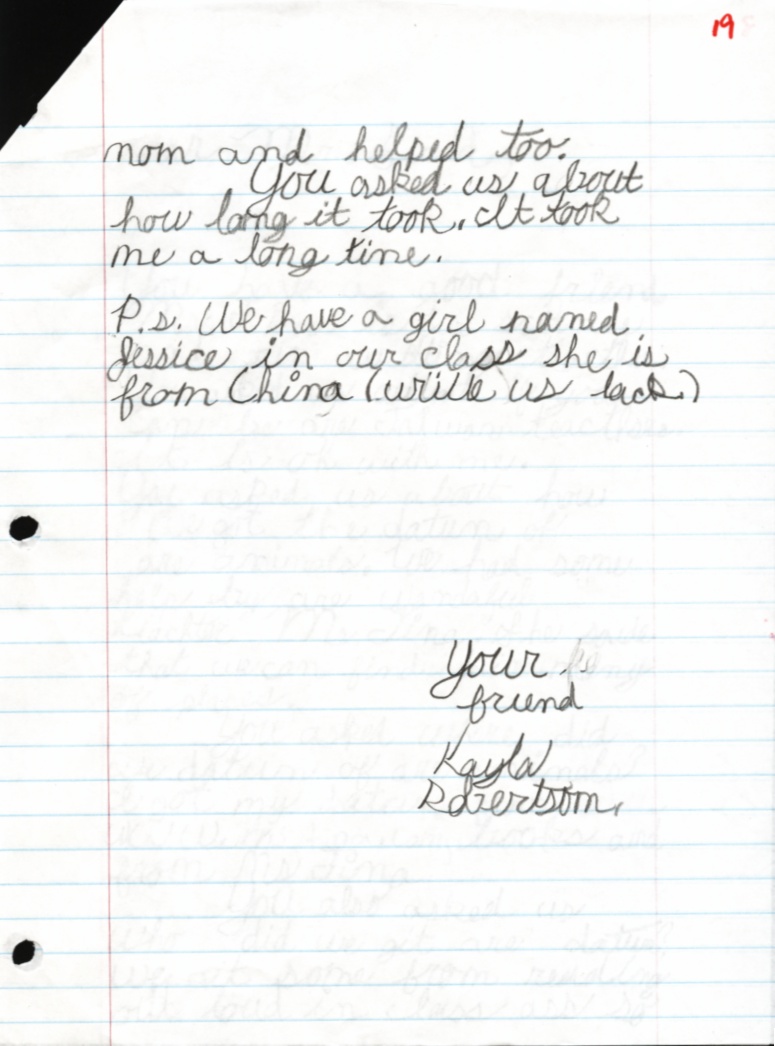 19
mom and helped too.
You asked us about
how long it took. It took
me a long time.
P.s. We have a girl named
Jessice in our class she is
from China (write us back.)
Your
friend
Kayla
Robertson.